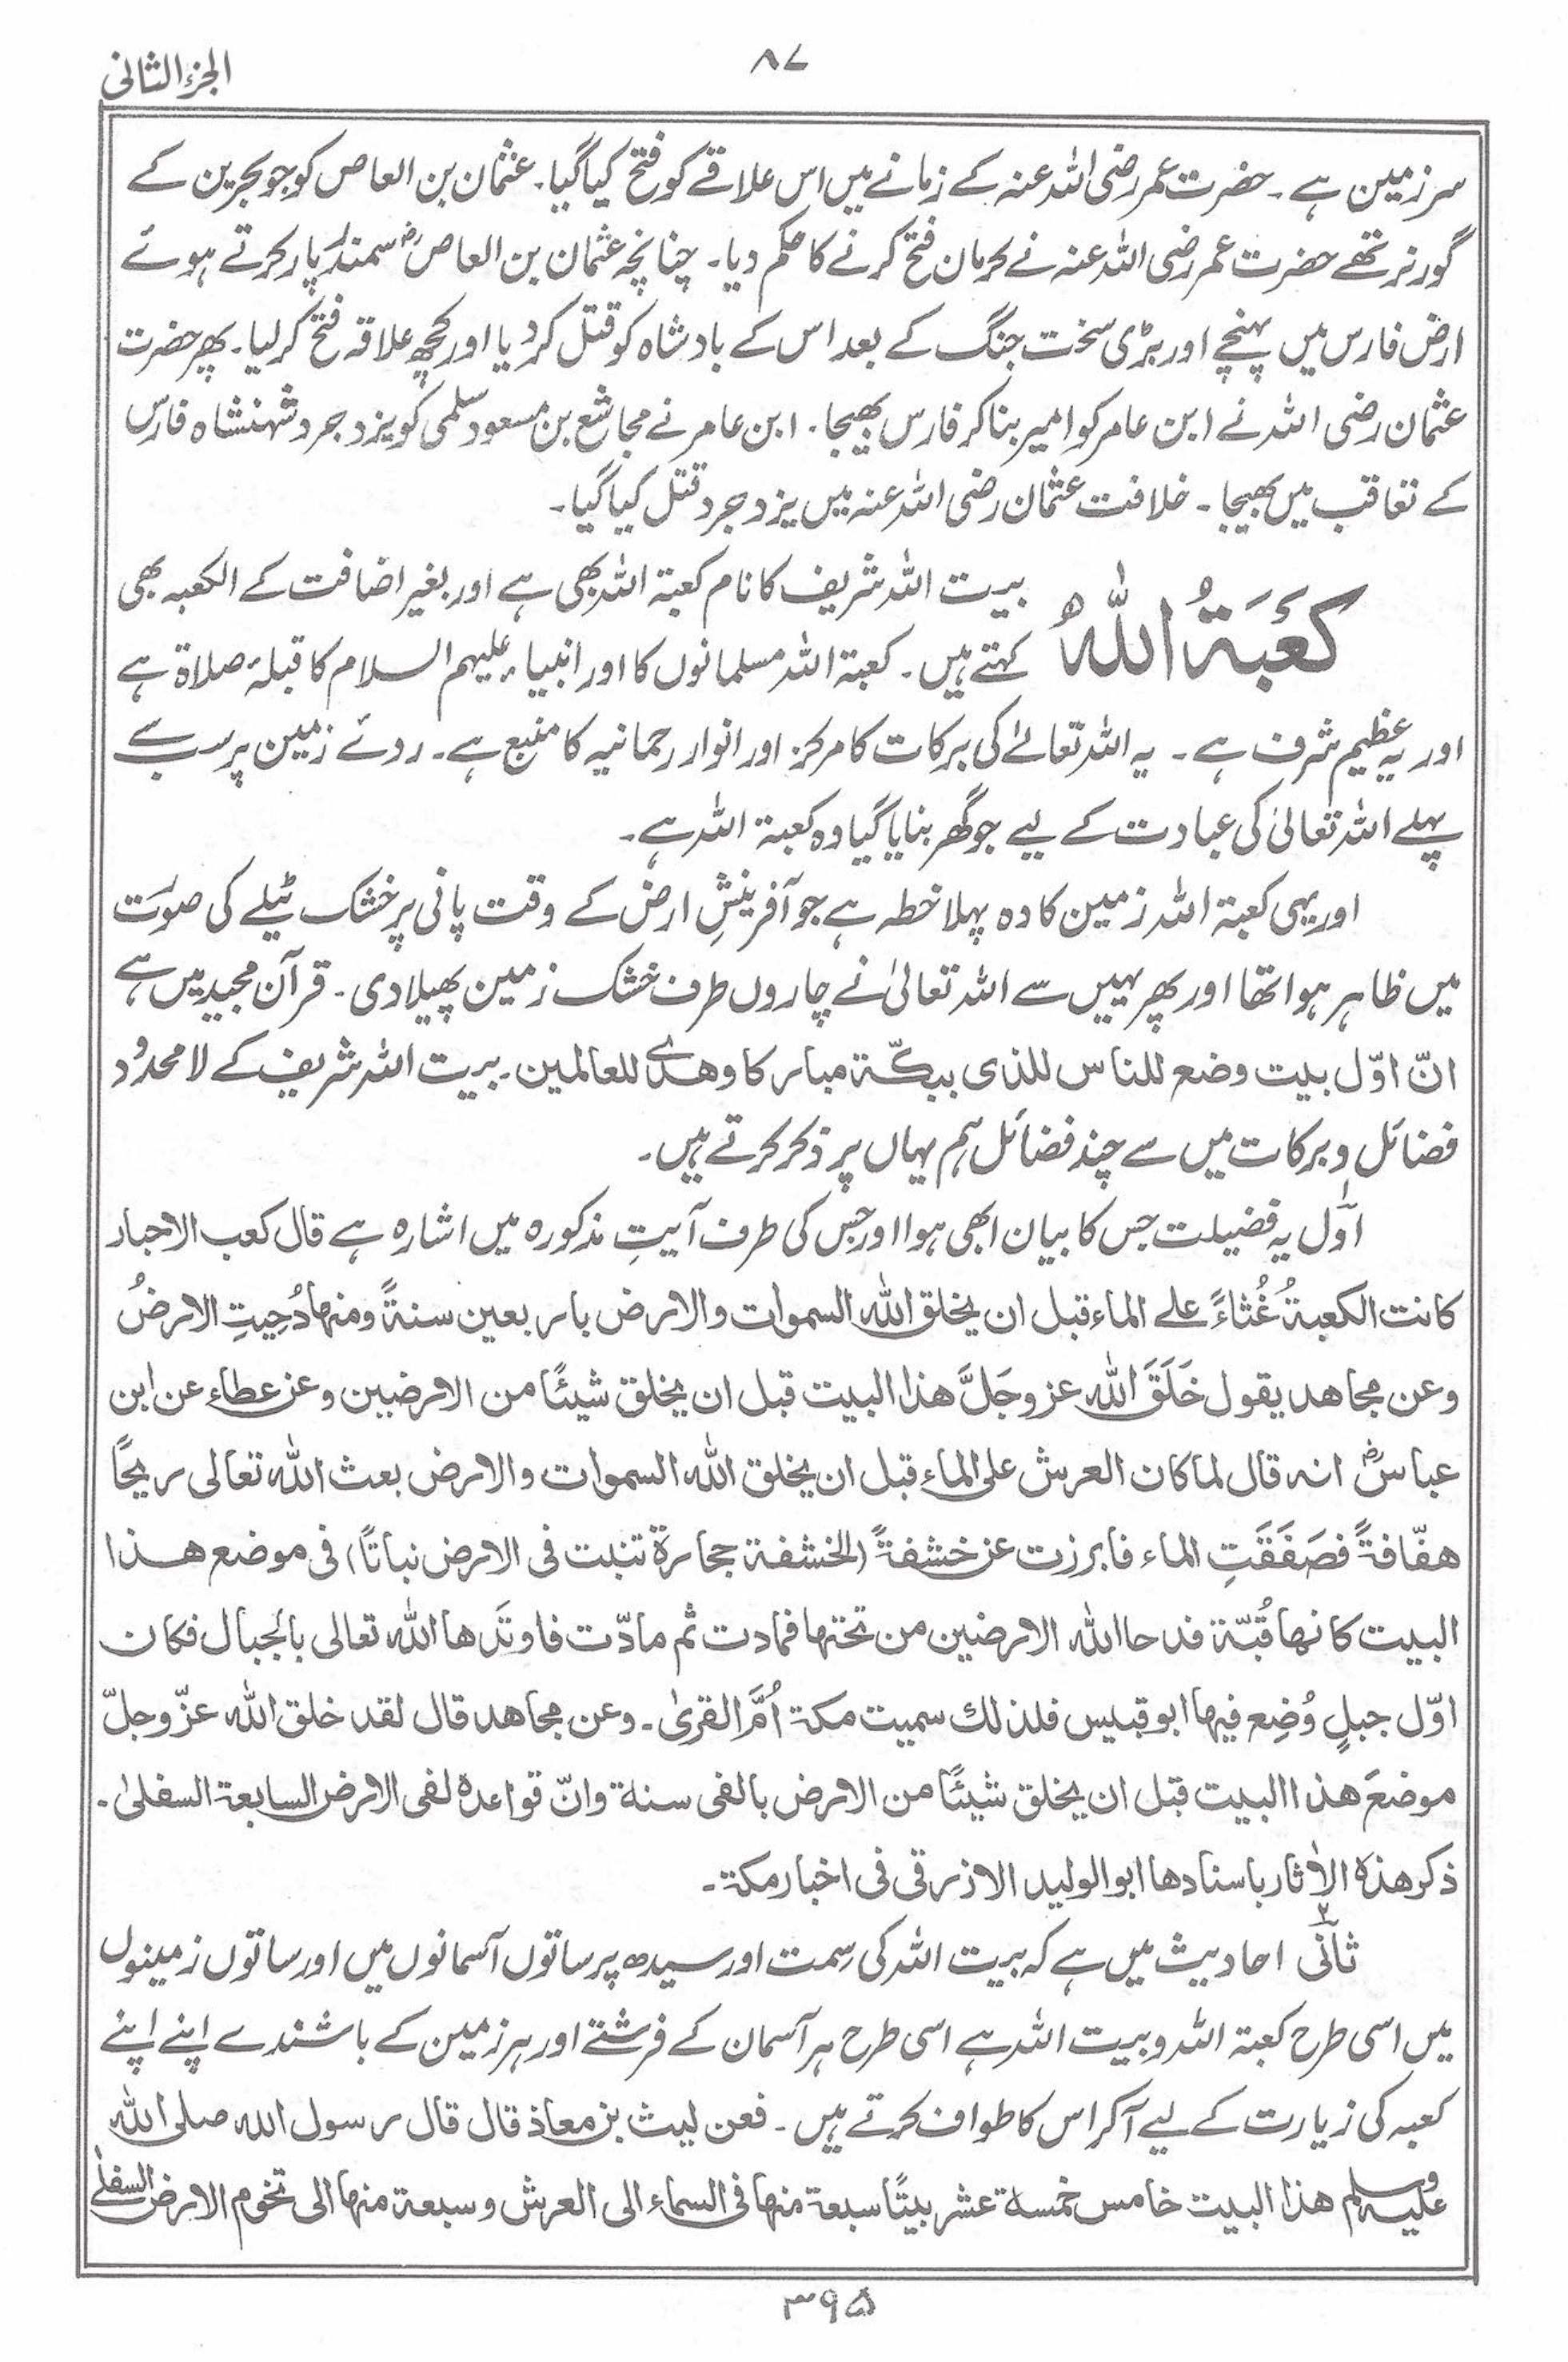 الجزء الثانی
۸۷
سرزمین ہے۔ حضرت عمر رضی اللہ عنہ کے زمانے میں اس علاقے کو فتح کیا گیا۔ عثمان بن العاص کو جو بحرین کے
گورنر تھے حضرت عمر رضی اللہ عنہ نے کرمان فتح کرنے کا حکم دیا۔ چنانچہ عثمان بن العاصؓ سمندر پار کرتے ہوئے
ارض فارس میں پہنچے اور بڑی سخت جنگ کے بعد اس کے بادشاہ کو قتل کر دیا اور کچھ علاقہ فتح کر لیا۔ پھر حضرت
عثمان رضی اللہ نے ابن عامر کو امیر بنا کر فارس بھیجا۔ ابن عامر نے مجاشع بن مسعود سلمی کو یزدجرد شہنشاہ فارس
کے تعاقب میں بھیجا۔ خلافت عثمان رضی اللہ عنہ میں یزدجرد قتل کیا گیا۔
کَعْبَۃُ اللّٰہِ بیت اللہ شریف کا نام کعبۃ اللہ بھی ہے اور بغیر اضافت کے الکعبہ بھی
کہتے ہیں۔ کعبۃ اللہ مسلمانوں کا اور انبیاء علیہم السلام کا قبلۂ صلاۃ ہے
اور یہ عظیم شرف ہے۔ یہ اللہ تعالےٰ کی برکات کا مرکز اور انوار رحمانیہ کا منبع ہے۔ روئے زمین پر سب سے
پہلے اللہ تعالیٰ کی عبادت کے لیے جو گھر بنایا گیا وہ کعبۃ اللہ ہے۔
اور یہی کعبۃ اللہ زمین کا وہ پہلا خطہ ہے جو آفرینشِ ارض کے وقت پانی پر خشک ٹیلے کی صورت
میں ظاہر ہوا تھا اور پھر یہیں سے اللہ تعالیٰ نے چاروں طرف خشک زمین پھیلا دی۔ قرآن مجید میں ہے
انّ اوّل بیت وضع للناس للذی ببکّۃ مبارکا وھدًی للعالمین۔ بیت اللہ شریف کے لا محدود
فضائل و برکات میں سے چند فضائل ہم یہاں پر ذکر کرتے ہیں۔
اوّل یہ فضیلت جس کا بیان ابھی ہوا اور جس کی طرف آیتِ مذکورہ میں اشارہ ہے قال کعب الاحبار
کانت الکعبۃُ غُثاءً علے الماء قبل ان یخلق اللّٰہ السموات والارض باربعین سنۃً ومنہا دُحِیتِ الارضُ
وعن مجاھد یقول خَلَقَ اللّٰہ عز وجَلَّ ھذا البیت قبل ان یخلق شیئًا من الارضین وعن عطاء عن ابن
عباسؓ انہ قال لما کان العرش علی الماء قبل ان یخلق اللّٰہ السموات والارض بعث اللّٰہ تعالی ریحًا
ھفّافۃً فصَفَقَتِ الماء فابرزت عن خشفۃً (الخشفۃ حجارۃ تنبت فی الارض نباتًا) فی موضع ھذا
البیت کانھا قُبّۃ فدحا اللّٰہ الارضین من تحتہا فمادت ثم مادّت فاوتَدھا اللّٰہ تعالی بالجبال فکان
اوّل جبلٍ وُضِع فیہا ابو قبیس فلذلك سمیت مکۃ اُمَّ القریٰ۔ وعن مجاھد قال لقد خلق اللّٰہ عزّ وجلّ
موضعَ ھذا البیت قبل ان یخلق شیئًا من الارض بالفی سنۃ وانّ قواعدہ لفی الارض السابعۃ السفلیٰ۔
ذکر ھذہ الاٰثار باسنادھا ابو الولید الازرقی فی اخبار مکۃ۔
۲ ثانیٔ احادیث میں ہے کہ بیت اللہ کی سمت اور سیدھ پر ساتوں آسمانوں میں اور ساتوں زمینوں
میں اسی طرح کعبۃ اللہ و بیت اللہ ہے اسی طرح ہر آسمان کے فرشتے اور ہر زمین کے باشندے اپنے اپنے
کعبہ کی زیارت کے لیے آ کر اس کا طواف کرتے ہیں۔ فعن لیث بن معاذ قال قال رسول اللہ صلی اللّٰہ
علیہ وسلم ھذا البیت خامس خمسۃ عشر بیتًا سبعۃ منہا فی السماء الی العرش وسبعۃ منہا الی تخوم الارض السفلٰے
۳۹۵